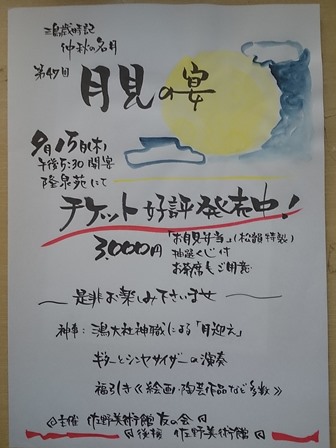 三嶋歳時記
仲秋の名月
第47回
月見の宴
9月15日(木)
午後5:30開宴
隆泉苑にて
チケット好評発売中!
3,000円
「お月見弁当」(松韻特製)
抽選くじ付
お茶席もご用意
是非お楽しみ下さいませ
神事: 三嶋大社神職による「月迎え」
ギターとシンセサイザーの演奏
福引き《絵画・陶芸作品など多数》
主催 佐野美術館友の会
後援 佐野美術館